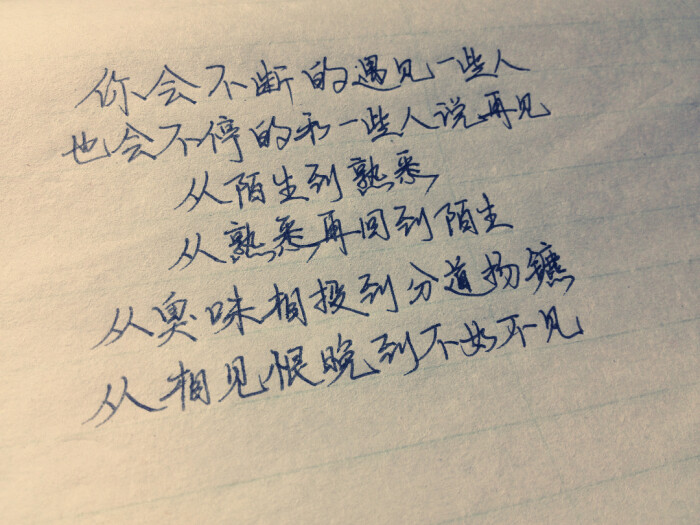 你会不断的遇见一些人
也会不停的和一些人说再见
从陌生到熟悉
从熟悉再回到陌生
从臭味相投到分道扬镳
从相见恨晚到不如不见